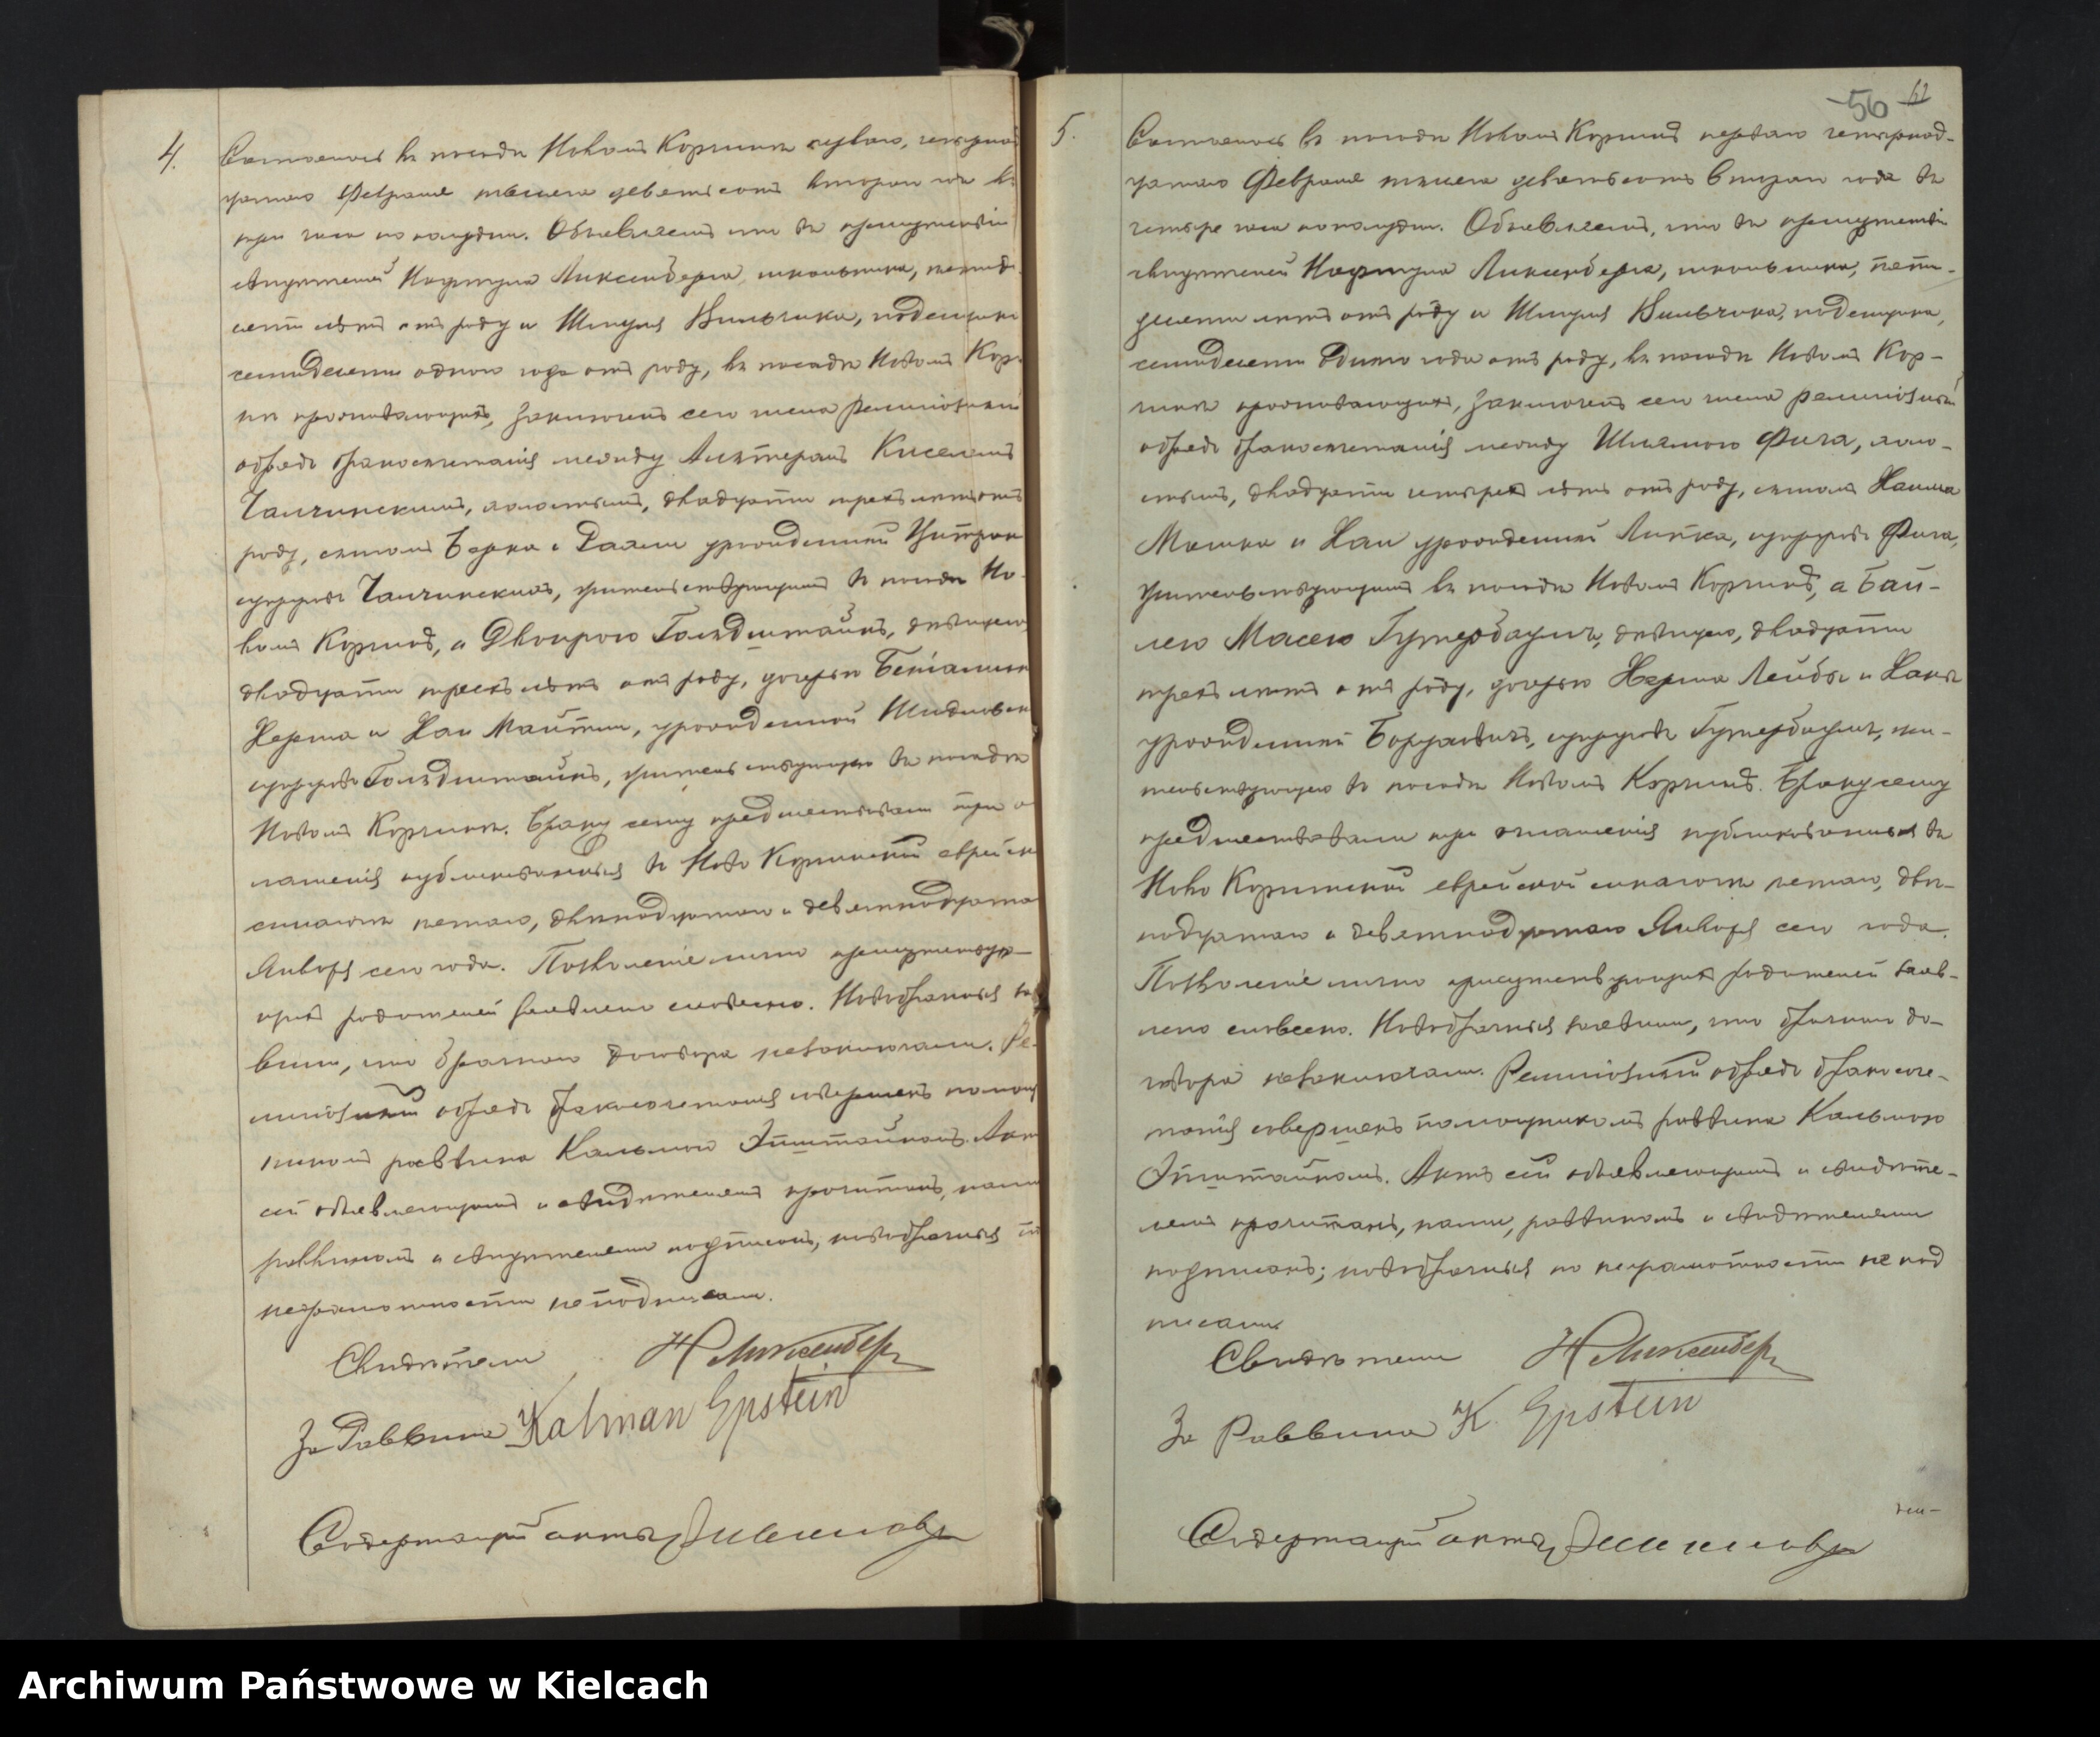 4.
Состоялось въ посадѣ Новомъ Корчинѣ перваго, четырнад
цатаго Февраля тысяча девятьсотъ второго года въ
три часа по полудни. Объявляемъ что въ присутствіи
свидѣтелей Нафтула Ликсенберга, школьника, пятиде
сяти лѣтъ отъ роду и Шмуля Вильчика, поденщика
семидесяти одного года отъ роду, въ посадѣ Новомъ Кор
нѣ проживающихъ, заключенъ сего числа религіозный
обрядъ бракосочетанія между Киселемъ
холостымъ, двадцати трехъ лѣтъ отъ
роду, сыномъ Берка и урожденной
супруговъ жительствующимъ въ посадѣ Но
вомъ Корчинѣ, а Двойрою Гольдштайнъ, дѣвицею
двадцати трехъ лѣтъ отъ роду, дочерью
Герша и Хаи урожденной
супруговъ Гольдштайнъ, жительствующею въ посадѣ
Новомъ Корчинѣ. Браку сему предшествовали три ог
лашенія публикованныя въ Ново Корчинской еврейск
синагогѣ пятаго, двѣнадцатаго и девятнадцата
Января сего года. Позволеніе лично присутствую-
щихъ родителей заявлено словесно. Новобрачные зая
вили, что брачнаго договора незаключали. Ре-
лигіозный обрядъ бракосочетанія совершенъ помощ
никомъ раввина Кальмою Эпштайномъ. Актъ
сей объявляющимъ и свидѣтелямъ прочитанъ, нами
раввиномъ и свидѣтелями подписанъ, новобрачные по
неграмотности не подписали.
Свидѣтели Н Ликсенберг
За Раввина Kalman Epstein
Содержащій акты
56 62
5.
Состоялось въ посадѣ Новомъ Корчинѣ перваго четырнад-
цатаго Февраля тысяча девятьсотъ второго года въ
четыре часа по полудни. Объявляемъ, что въ присутствіи
свидѣтелей Нафтула Ликсенберга, школьника, пяти-
десяти лѣтъ отъ роду и Шмуля Вильчика, поденщика,
семидесяти одного года отъ роду, въ посадѣ Новомъ Кор-
чинѣ проживающихъ, заключенъ сего числа религіозный
обрядъ бракосочетанія между Шлямою Фига, холо-
стымъ, двадцати четырехъ лѣтъ отъ роду, сыномъ Хаима
Мошка и Хаи урожденной Липка, супруговъ Фига,
жительствующимъ въ посадѣ Новомъ Корчинѣ, а Бай-
лею Масею дѣвицею, двадцати
трехъ лѣтъ отъ роду, дочерью Герша Лейбы и Ханы
урожденной супруговъ жи-
тельствующею въ посадѣ Новомъ Корчинѣ. Браку сему
предшествовали три оглашенія публикованныя въ
Ново Корчинской еврейской синагогѣ пятаго, двѣ-
надцатаго и девятнадцатаго Января сего года.
Позволеніе лично присутствующихъ родителей заяв-
лено словесно. Новобрачные заявили, что брачнаго до-
говора незаключали. Религіозный обрядъ бракосоче-
танія совершенъ помощникомъ раввина Кальмою
Эпштайномъ. Актъ сей объявляющимъ и свидѣте-
лямъ прочитанъ, нами, раввиномъ и свидѣтелями
подписанъ; новобрачные по неграмотности не под
писали
Свидѣтели Н Ликсенберг
За Раввина K. Epstein
Содержащій акты
Archiwum Państwowe w Kielcach